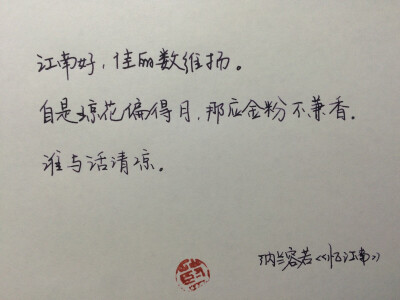 江南好，佳丽数维扬。
自是琼花偏得月，那应金粉不兼香。
谁与话清凉。
纳兰容若《忆江南》